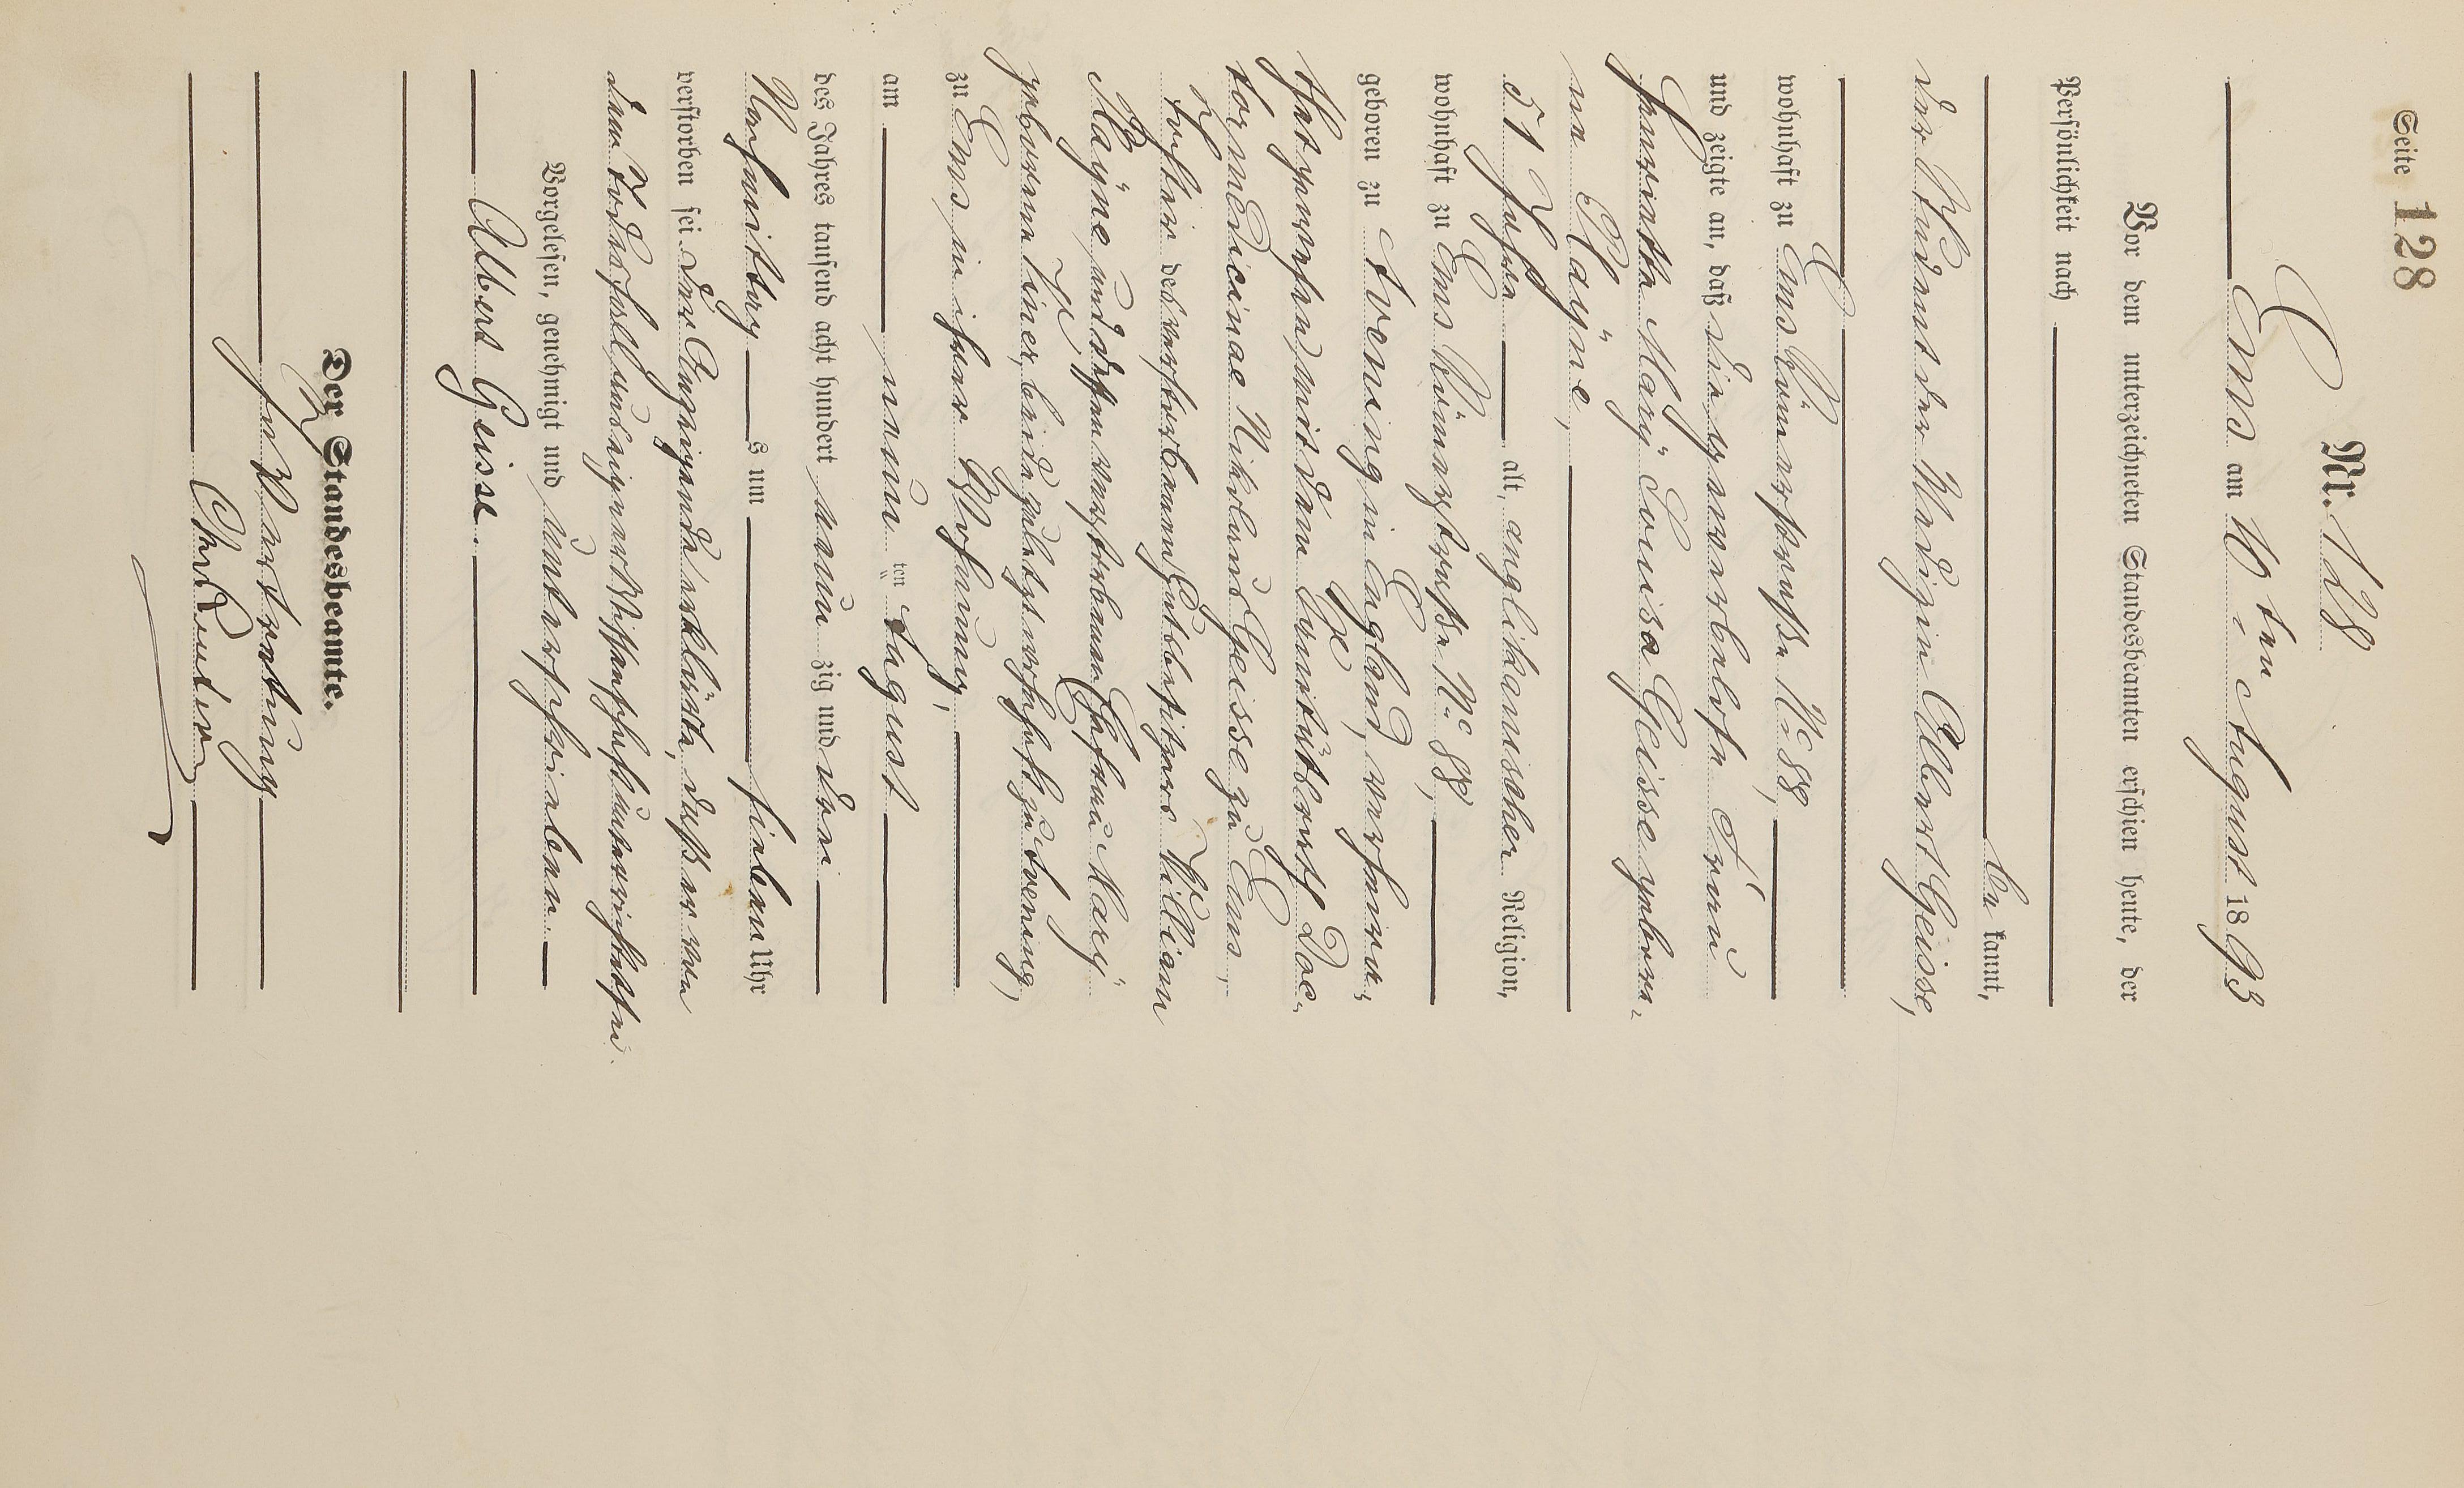 Seite 128
Nr. 128
Ems am 10ten August 1893
Vor dem unterzeichneten Standesbeamten erschien heute, der
Persönlichkeit nach
be kannt,
der Student der Medizin Albert Geisse,
wohnhaft zu Ems Römerstraße No 88,
und zeigte an, daß die gewerbelose Frau
Henriette Mary Louisa Geisse gebore-
ne Mayne,
51 Jahre alt, anglikanischer Religion,
wohnhaft zu Ems Römerstraße No 88,
geboren zu Avening in England, verheira-
thet gewesen mit dem Sanitätsrath Doc-
tor medicinae Nikolaus Geisse zu Ems,
Tochter des verstorbenen Gutsbesitzers William
Mayne und dessen verstorbenen Ehefrau Mary
geborene Viner, beide zuletzt wohnhaft zu Avening,
zu Ems in ihrer Wohnung,
am neun ten August
des Jahres tausend acht hundert neun zig und drei
Nachmittag s um sieben Uhr
verstorben sei. Der Anzeigende erklärte, daß er von
dem Todesfall aus eigener Wissenschaft unterrichtet sei.
Vorgelesen, genehmigt und unterschrieben.
Albert Geisse.
Der Standesbeamte.
In Vertretung